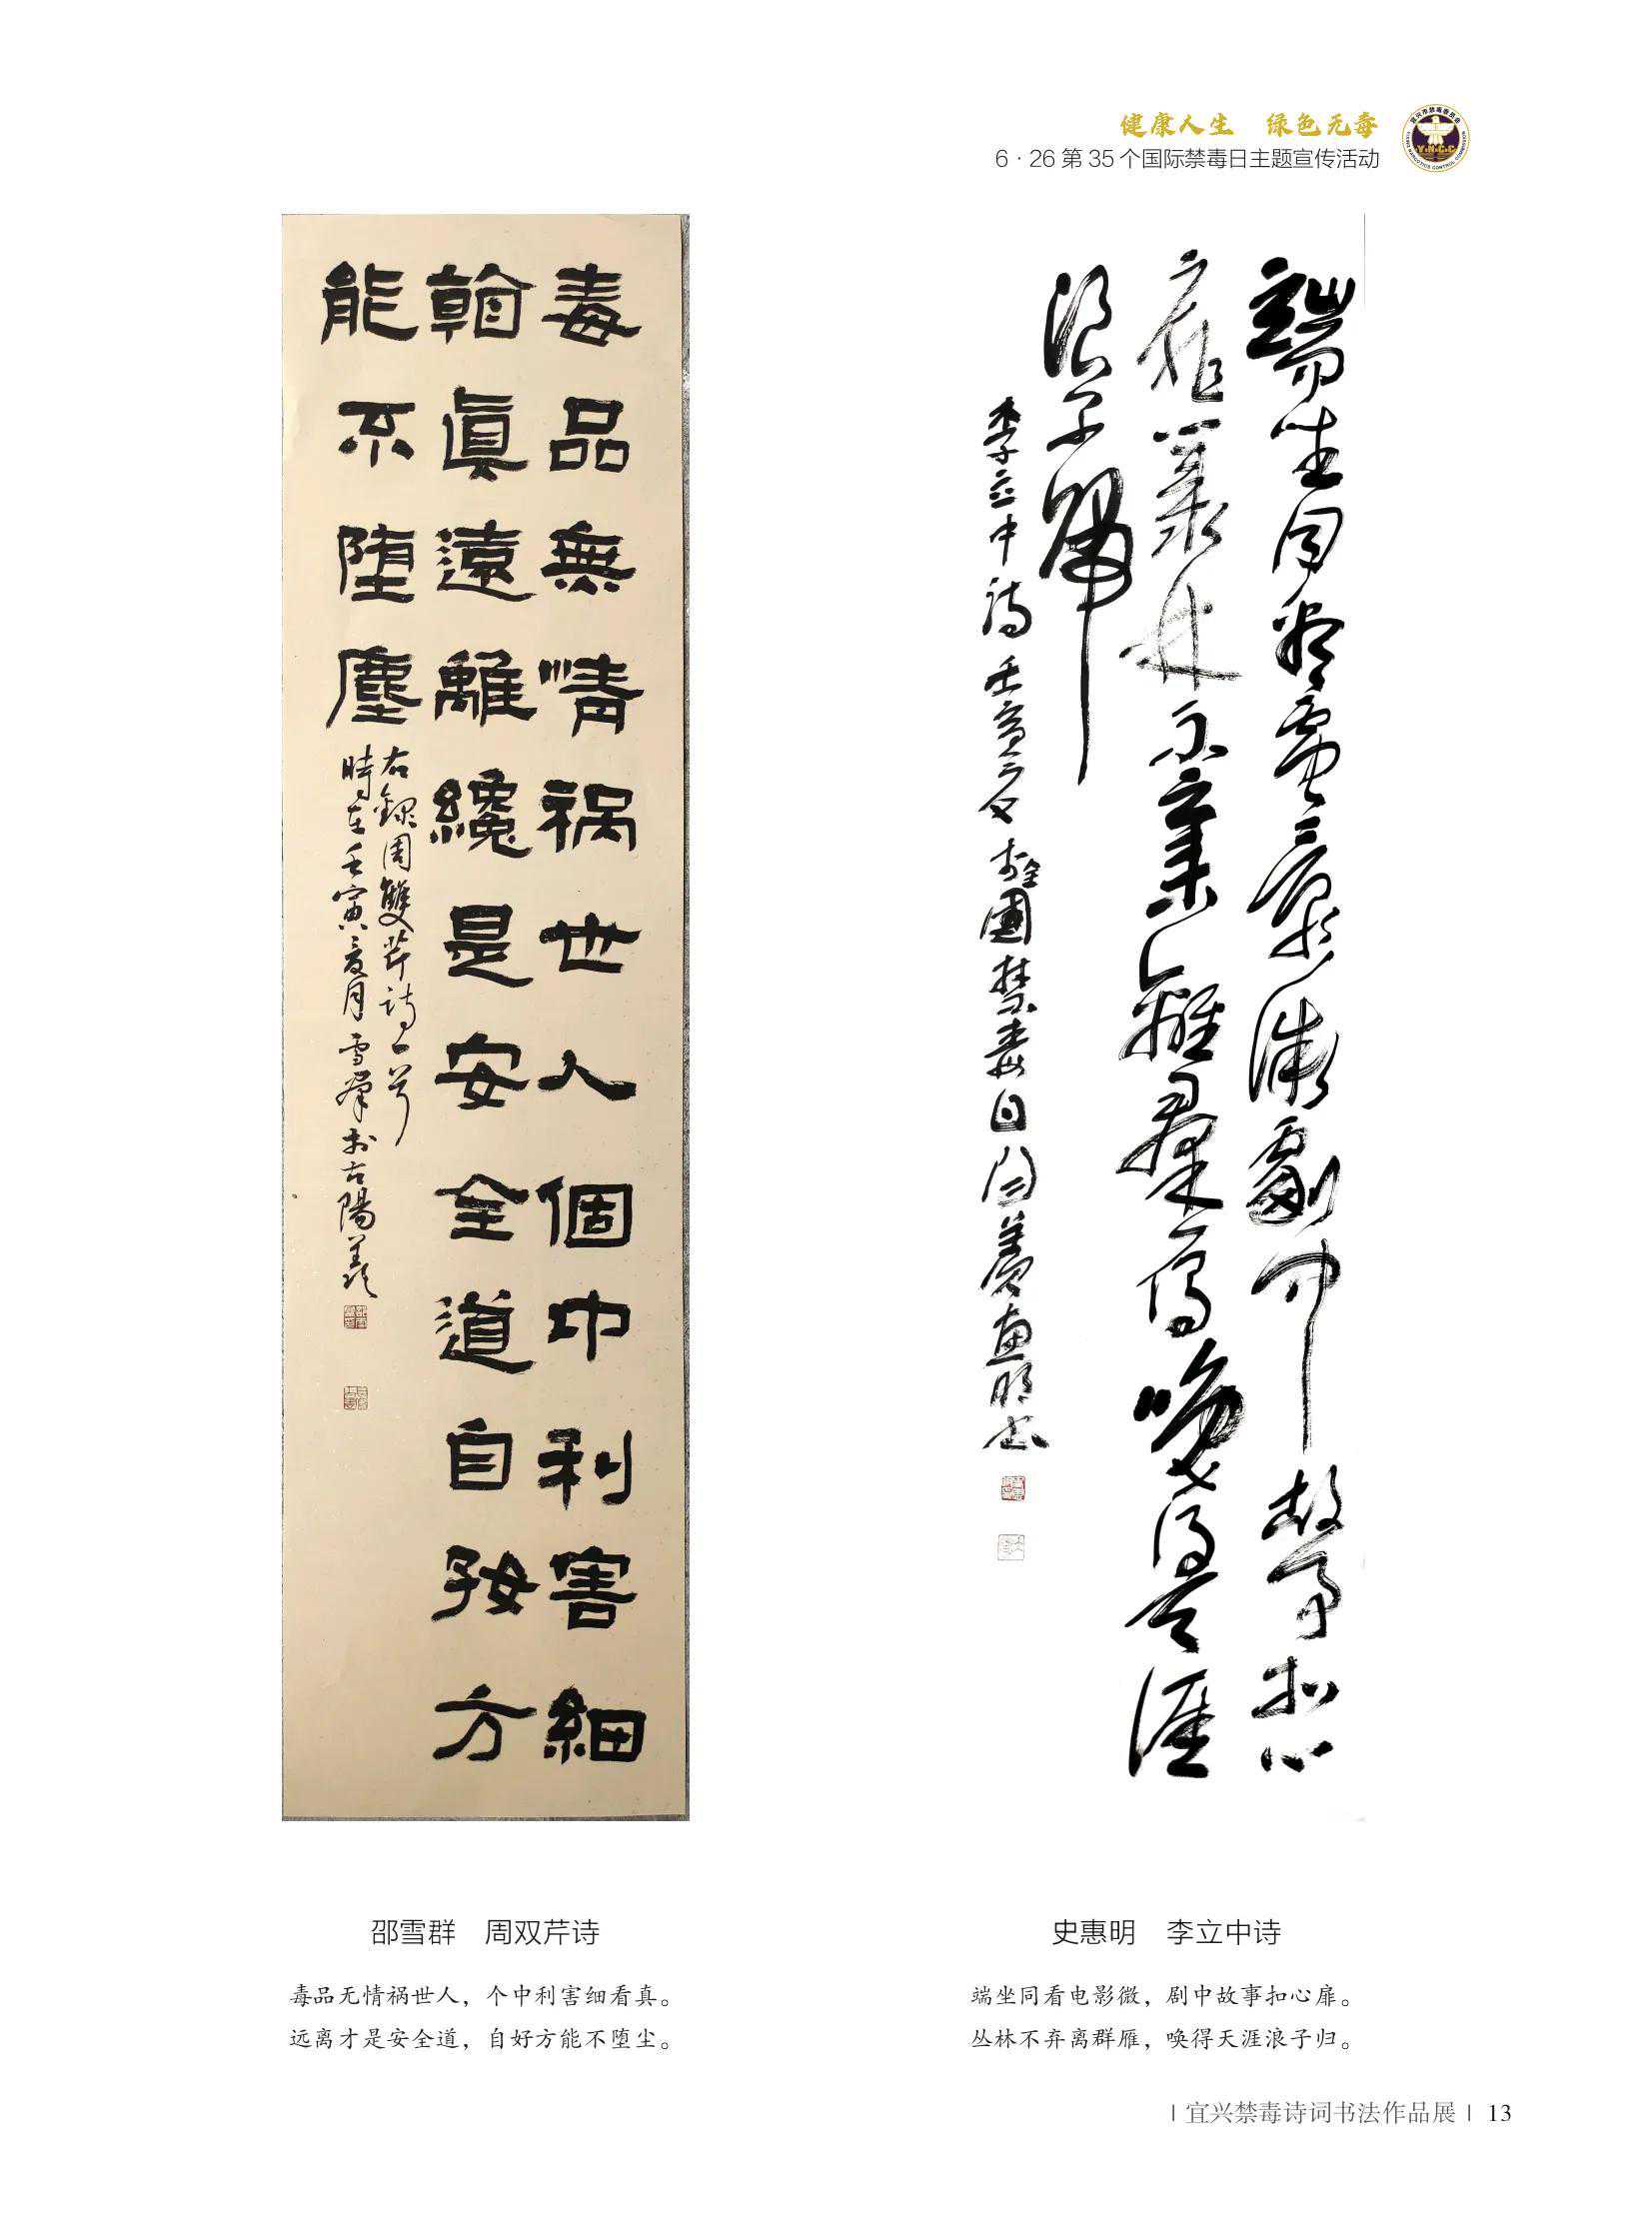 健康人生 绿色无毒
6·26第35个国际禁毒日主题宣传活动
宜兴市禁毒委员会
Y.N.C.C
毒品無情祸世人個中利害細
翰真遠離纔是安全道自𡥆方
能不堕塵
右録周雙芹詩一首
時在壬寅夏月雪群於古陽羨
端坐同看電影微劇中故事扣心
扉叢林不棄離群雁喚得天涯
浪子歸
李立中詩 壬寅夏 國禁毒日 惠明书
邵雪群 周双芹诗
毒品无情祸世人，个中利害细看真。
远离才是安全道，自好方能不堕尘。
史惠明 李立中诗
端坐同看电影微，剧中故事扣心扉。
丛林不弃离群雁，唤得天涯浪子归。
| 宜兴禁毒诗词书法作品展 | 13